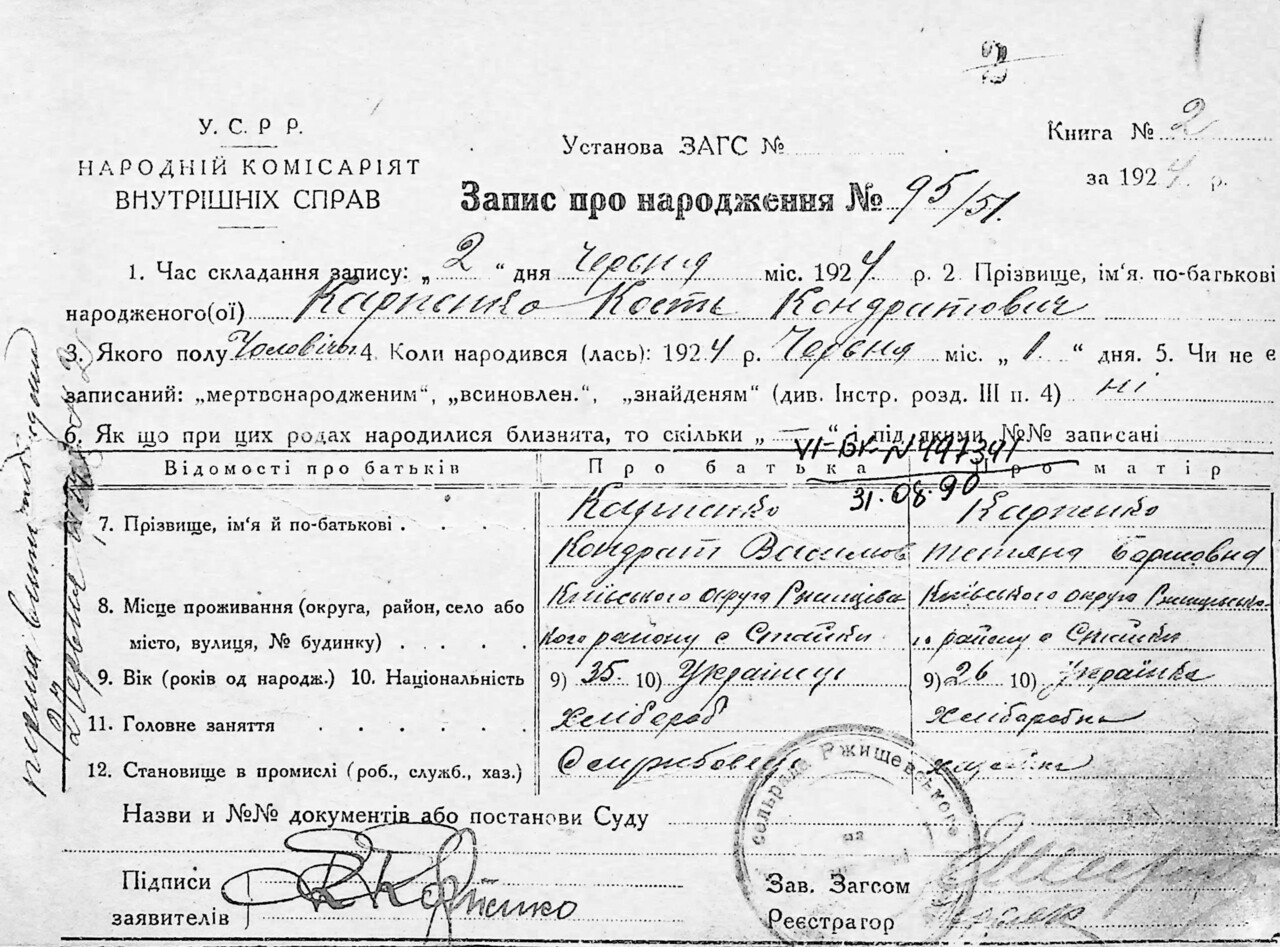 У. С. Р Р.
НАРОДНІЙ КОМІСАРІЯТ
ВНУТРІШНІХ СПРАВ
Установа ЗАГС №
Книга № 2
за 1924 р.
Запис про народження № 95/51.
1. Час складання запису: „ 2 “ дня Червня міс. 1924 р. 2. Прізвище, ім'я. по-батькові
народженого(ої) Карпенко Кость Кондратович
3. Якого полу Чоловічого 4. Коли народився (лась): 1924 р. Червня міс. „ 1. “ дня. 5. Чи не є
записаний: „мертвонародженим“, „всиновлен.“, „знайденям“ (див. Інстр. розд. III п. 4) ні
6. Як що при цих родах народилися близнята, то скільки „ — “ і під якими №№ записані
VI-БК N 497391
31.08.90
Відомості про батьків Про батька Про матір
7. Прізвище, ім'я й по-батькові Карпенко Карпенко
Кондрат Васильов Тетяна Борисовна
8. Місце проживання (округа, район, село або Київського округа Київського округа
місто, вулиця, № будинку) кого району с Стайки району с Стайки
9. Вік (років од народж.) 10. Національність 9) 35. 10) Українець 9) 26 10) Українка
11. Головне заняття Хлібороб Хліборобка
12. Становище в промислі (роб., служб., хаз.)
Назви и №№ документів або постанови Суду
Підписи
заявителів К Карпенко
Зав. Загсом
Реєстрагор
сельрада Ржищевського